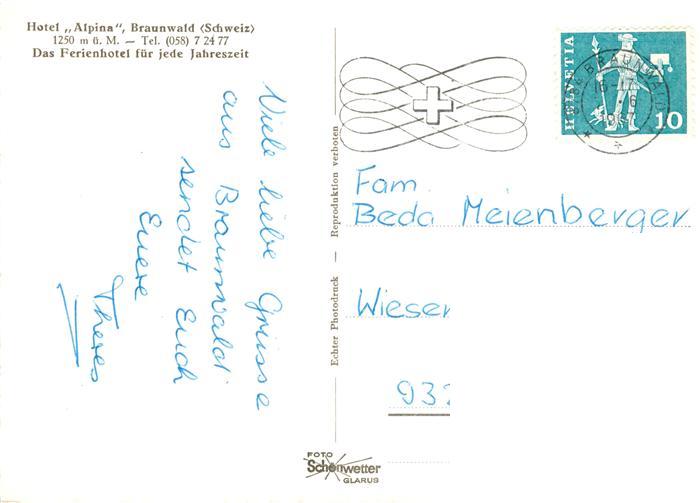 Hotel „Alpina“, Braunwald (Schweiz)
1250 m ü. M. – Tel. (058) 7 24 77
Das Ferienhotel für jede Jahreszeit
Viele liebe Grüsse
aus Braunwald
sendet Euch
Euere
Theres
Echter Photodruck – Reproduktion verboten
HELVETIA
10
BRAUNWALD
Fam.
Beda Meienberger
Wieser
93
FOTO
Schönwetter
GLARUS